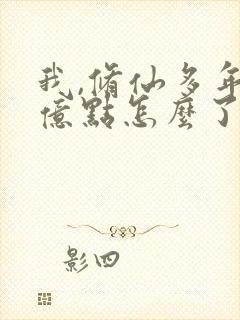 我,脩仙多年
億點怎麼了
影四